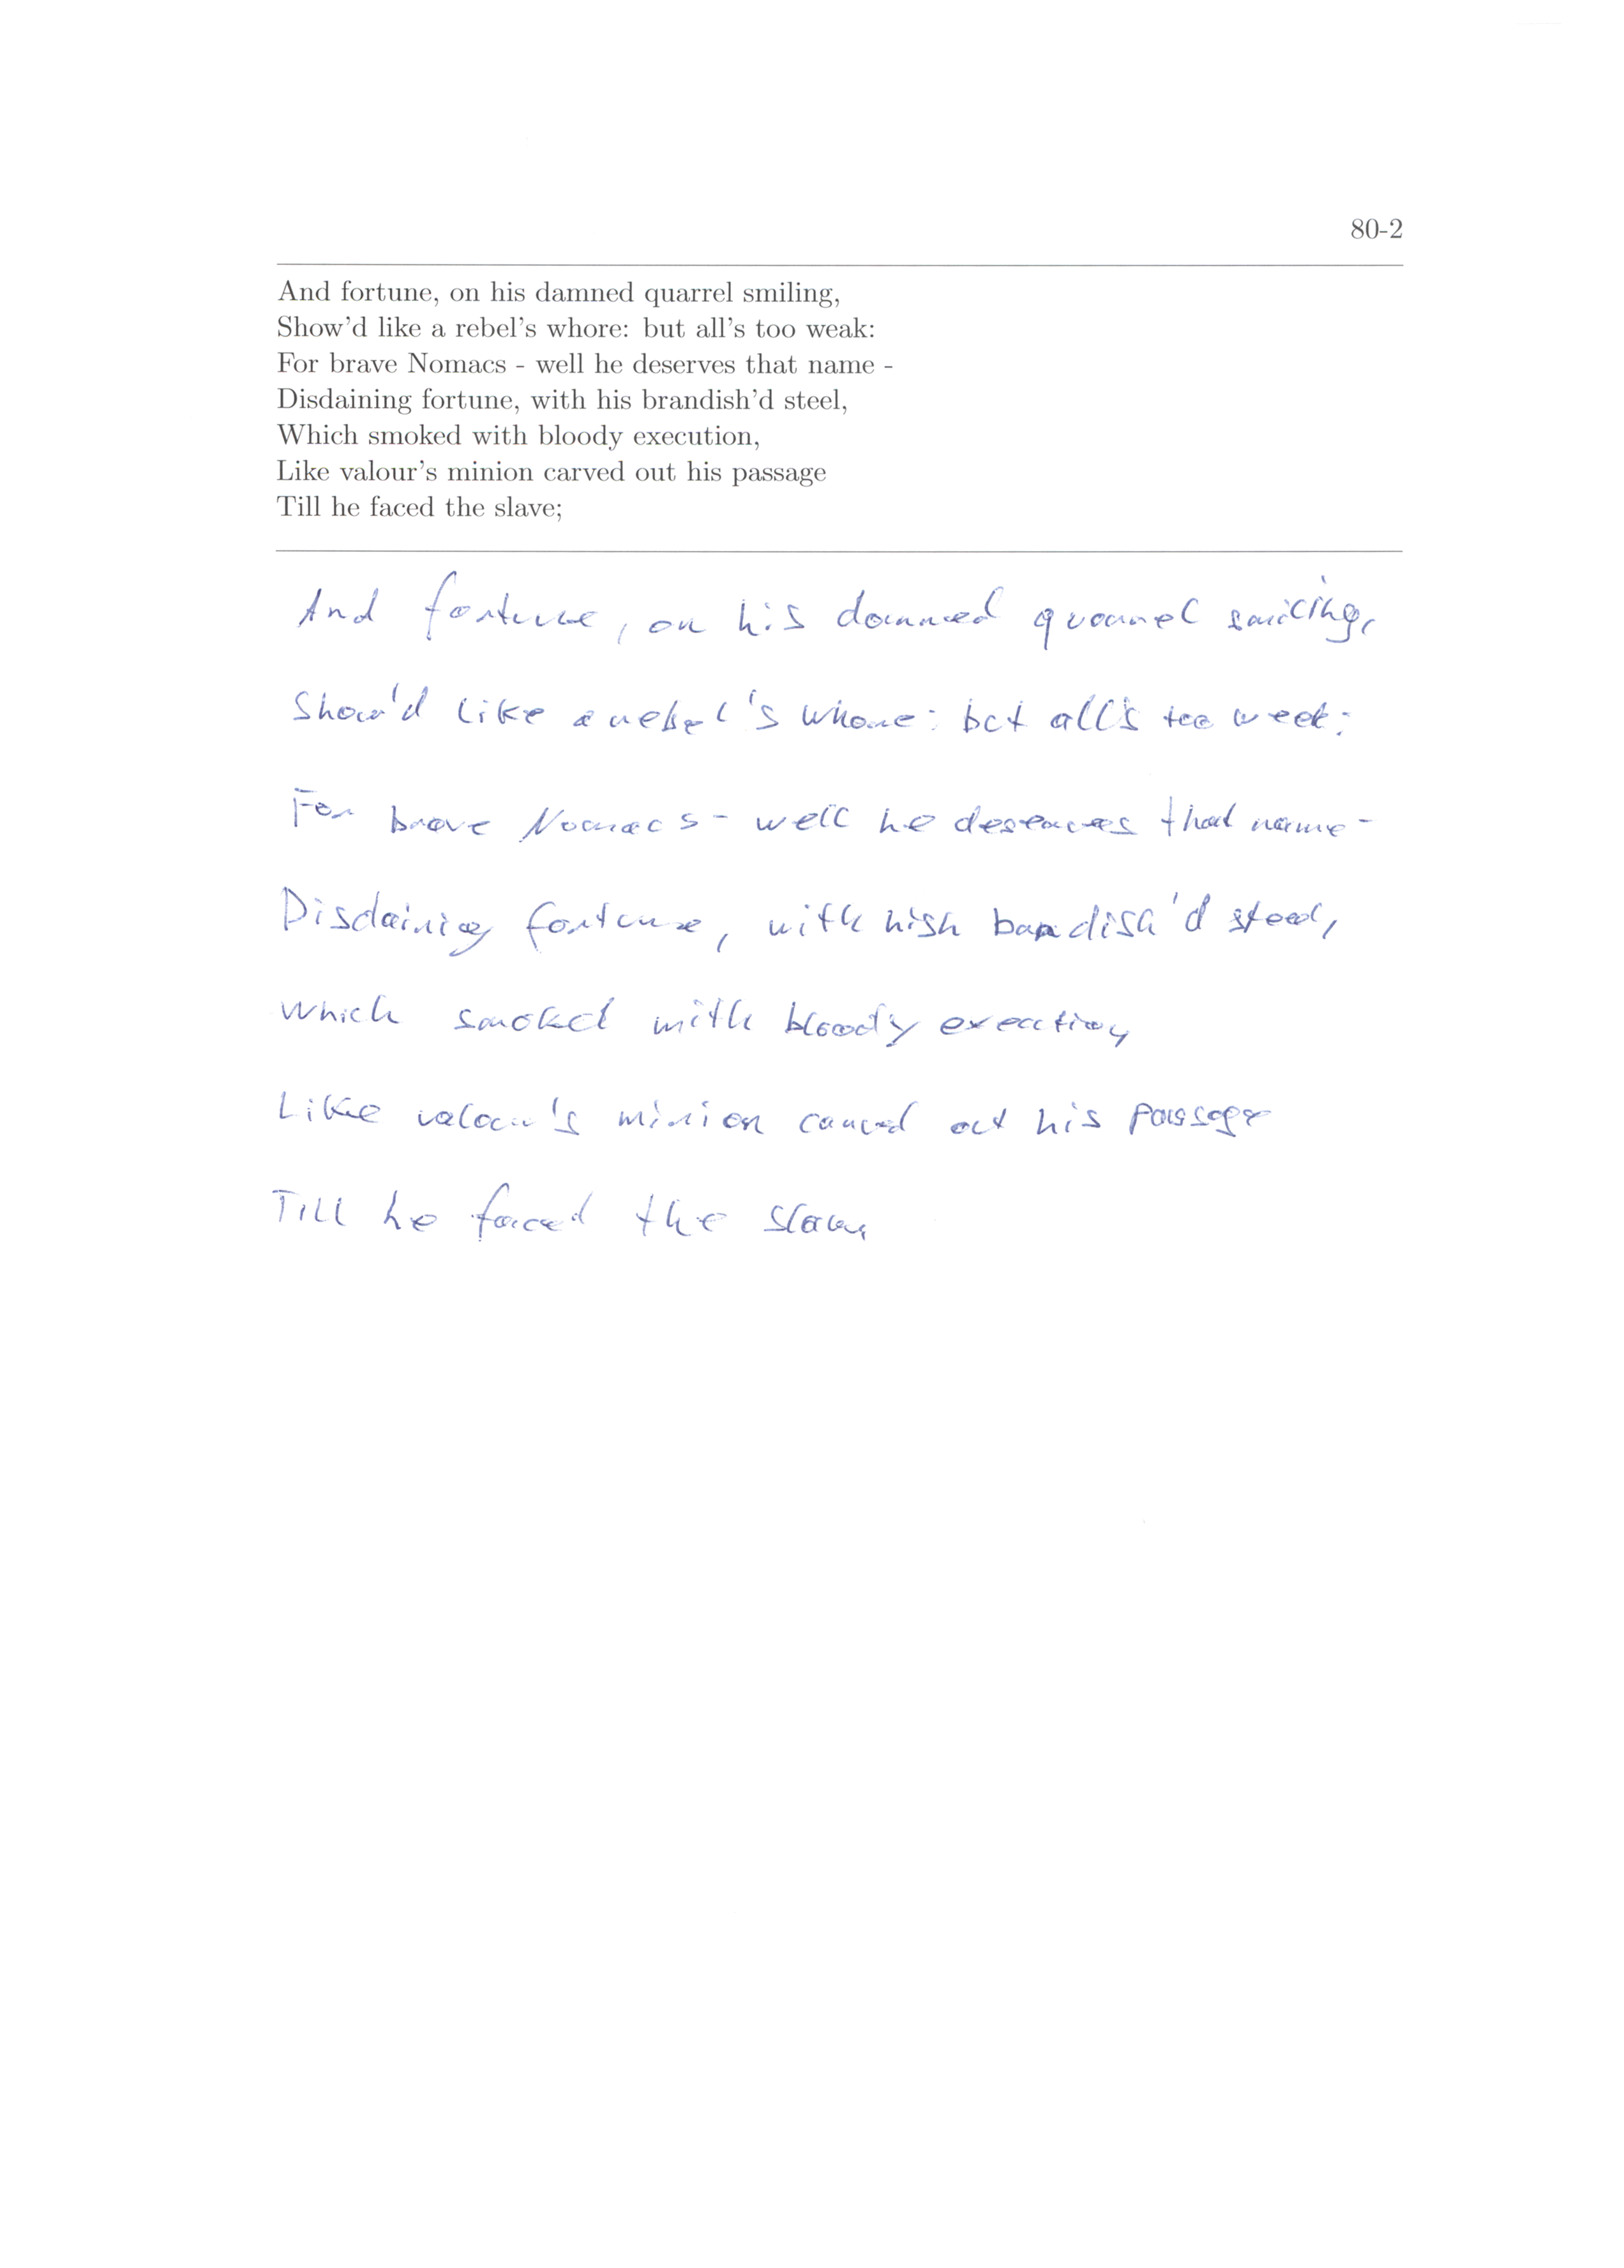 80-2
And fortune, on his damned quarrel smiling,
Show'd like a rebel's whore: but all's too weak:
For brave Nomacs - well he deserves that name -
Disdaining fortune, with his brandish'd steel,
Which smoked with bloody execution,
Like valour's minion carved out his passage
Till he faced the slave;
And fortune, on his damned quarrel smiling,
Show'd like a rebel's whore: but all's too week:
For brave Nomacs - well he deserves that name -
Disdaining fortune, with hish bandish'd steel,
Which smoked with bloody execution,
Like valour's minion carved out his passage
Till he faced the slave,